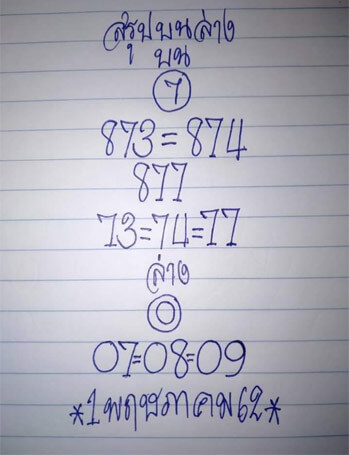 สรุปบนล่าง
บน
7
873=874
877
73=74=77
ล่าง
0
07=08=09
*1พฤษภาคม62*